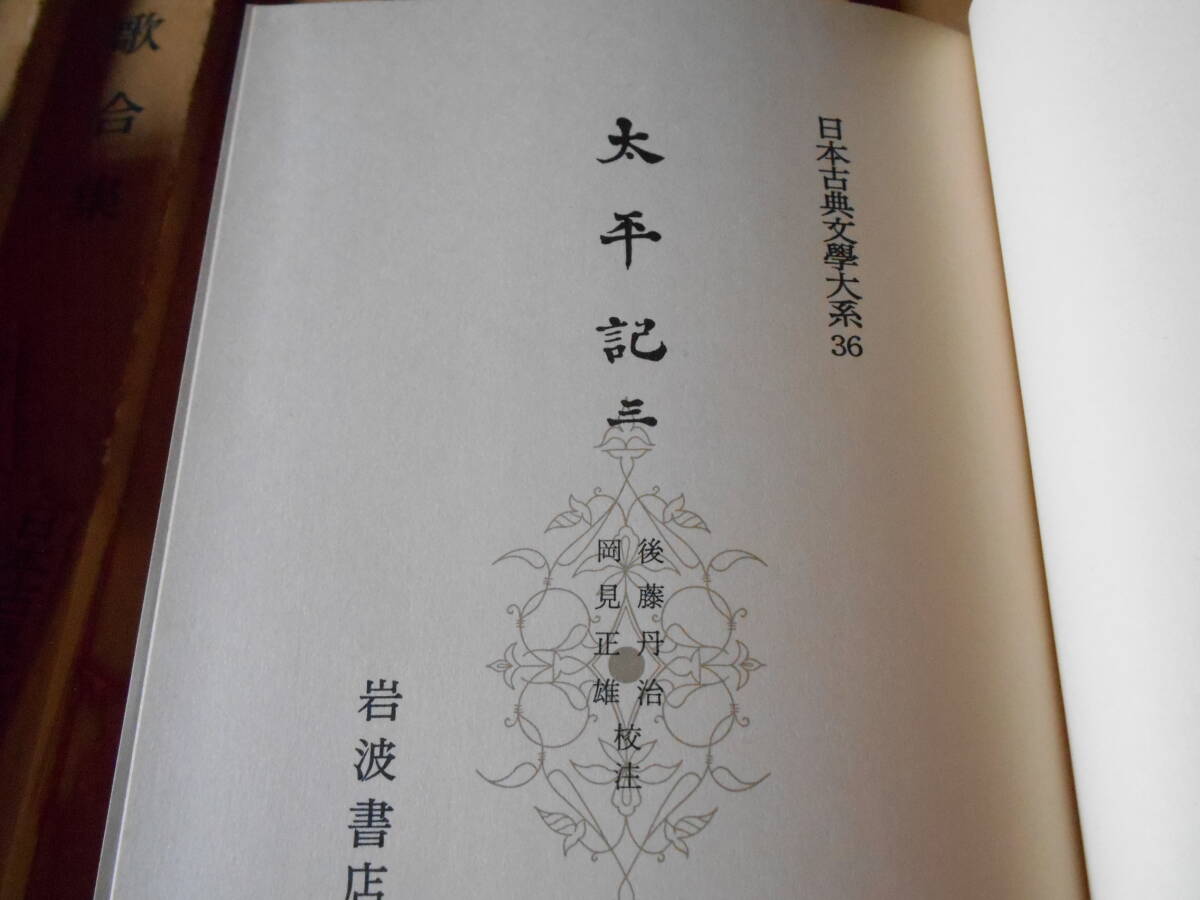 日本古典文學大系 36
太平記 三
後藤丹治
岡見正雄
校注
岩波書店
歌合集